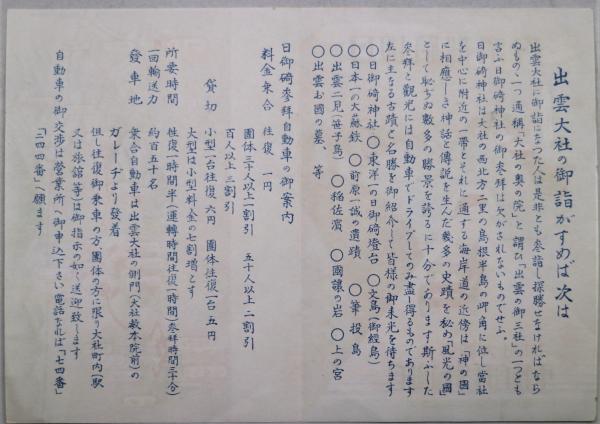 出雲大社の御詣がすめば次は
出雲大社に御詣になつた人は是非とも參詣し探勝せなければなら
ぬもの一つ通稱「大社の奧の院」と謂ひ「出雲の御三社」の一つとも
言ふ日御碕神社の御參拜は欠がされないものでせふ。
日御碕神社は大社の西北方二里の島根半島の岬角に位し當社
を中心に附近の一帶とそれに通ずる海岸道の近傍は「神の國」
に相應しき神話と傳説を生んだ幾多の史蹟を秘め「風光の國」
として恥ぢぬ數多の勝景を誇るに十分であります斯ふした
參拜と觀光には自動車でドライブしてのみ盡し得るものであります
左に主なる古蹟と名勝を御紹介して皆様の御來光を待ちます
〇日御碕神社 〇東洋一の日御碕燈台 〇文島(御經島)
〇日本一の大蘇鉄 〇前原一誠の遺蹟 〇筆投島
〇出雲二見(笹子島) 〇稲佐濱 〇國讓の岩 〇上の宮
〇出雲お國の墓、等
日御碕參拜自動車の御案内
料金乘合 往復 一円
團体三十人以上一割引 五十人以上二割引
百人以上三割引
貸切 小型一台往復六円 團体往復一台五円
大型は小型料金の七割增とす
所要時間 往復一時間半(運轉時間往復一時間、參拜時間三十分)
一回輸送力 約百五十名
發車地 乘合自動車は出雲大社の側門(大社敎本院前)の
ガレーヂより發着
但し往復御乘車の方、團体の方に限り大社町内(駅
又は旅舘等)は御指示の如く送迎致します
自動車の御交渉は營業所へ御申込下さい電話なれば「七四番」
「二四四番」へ願ます